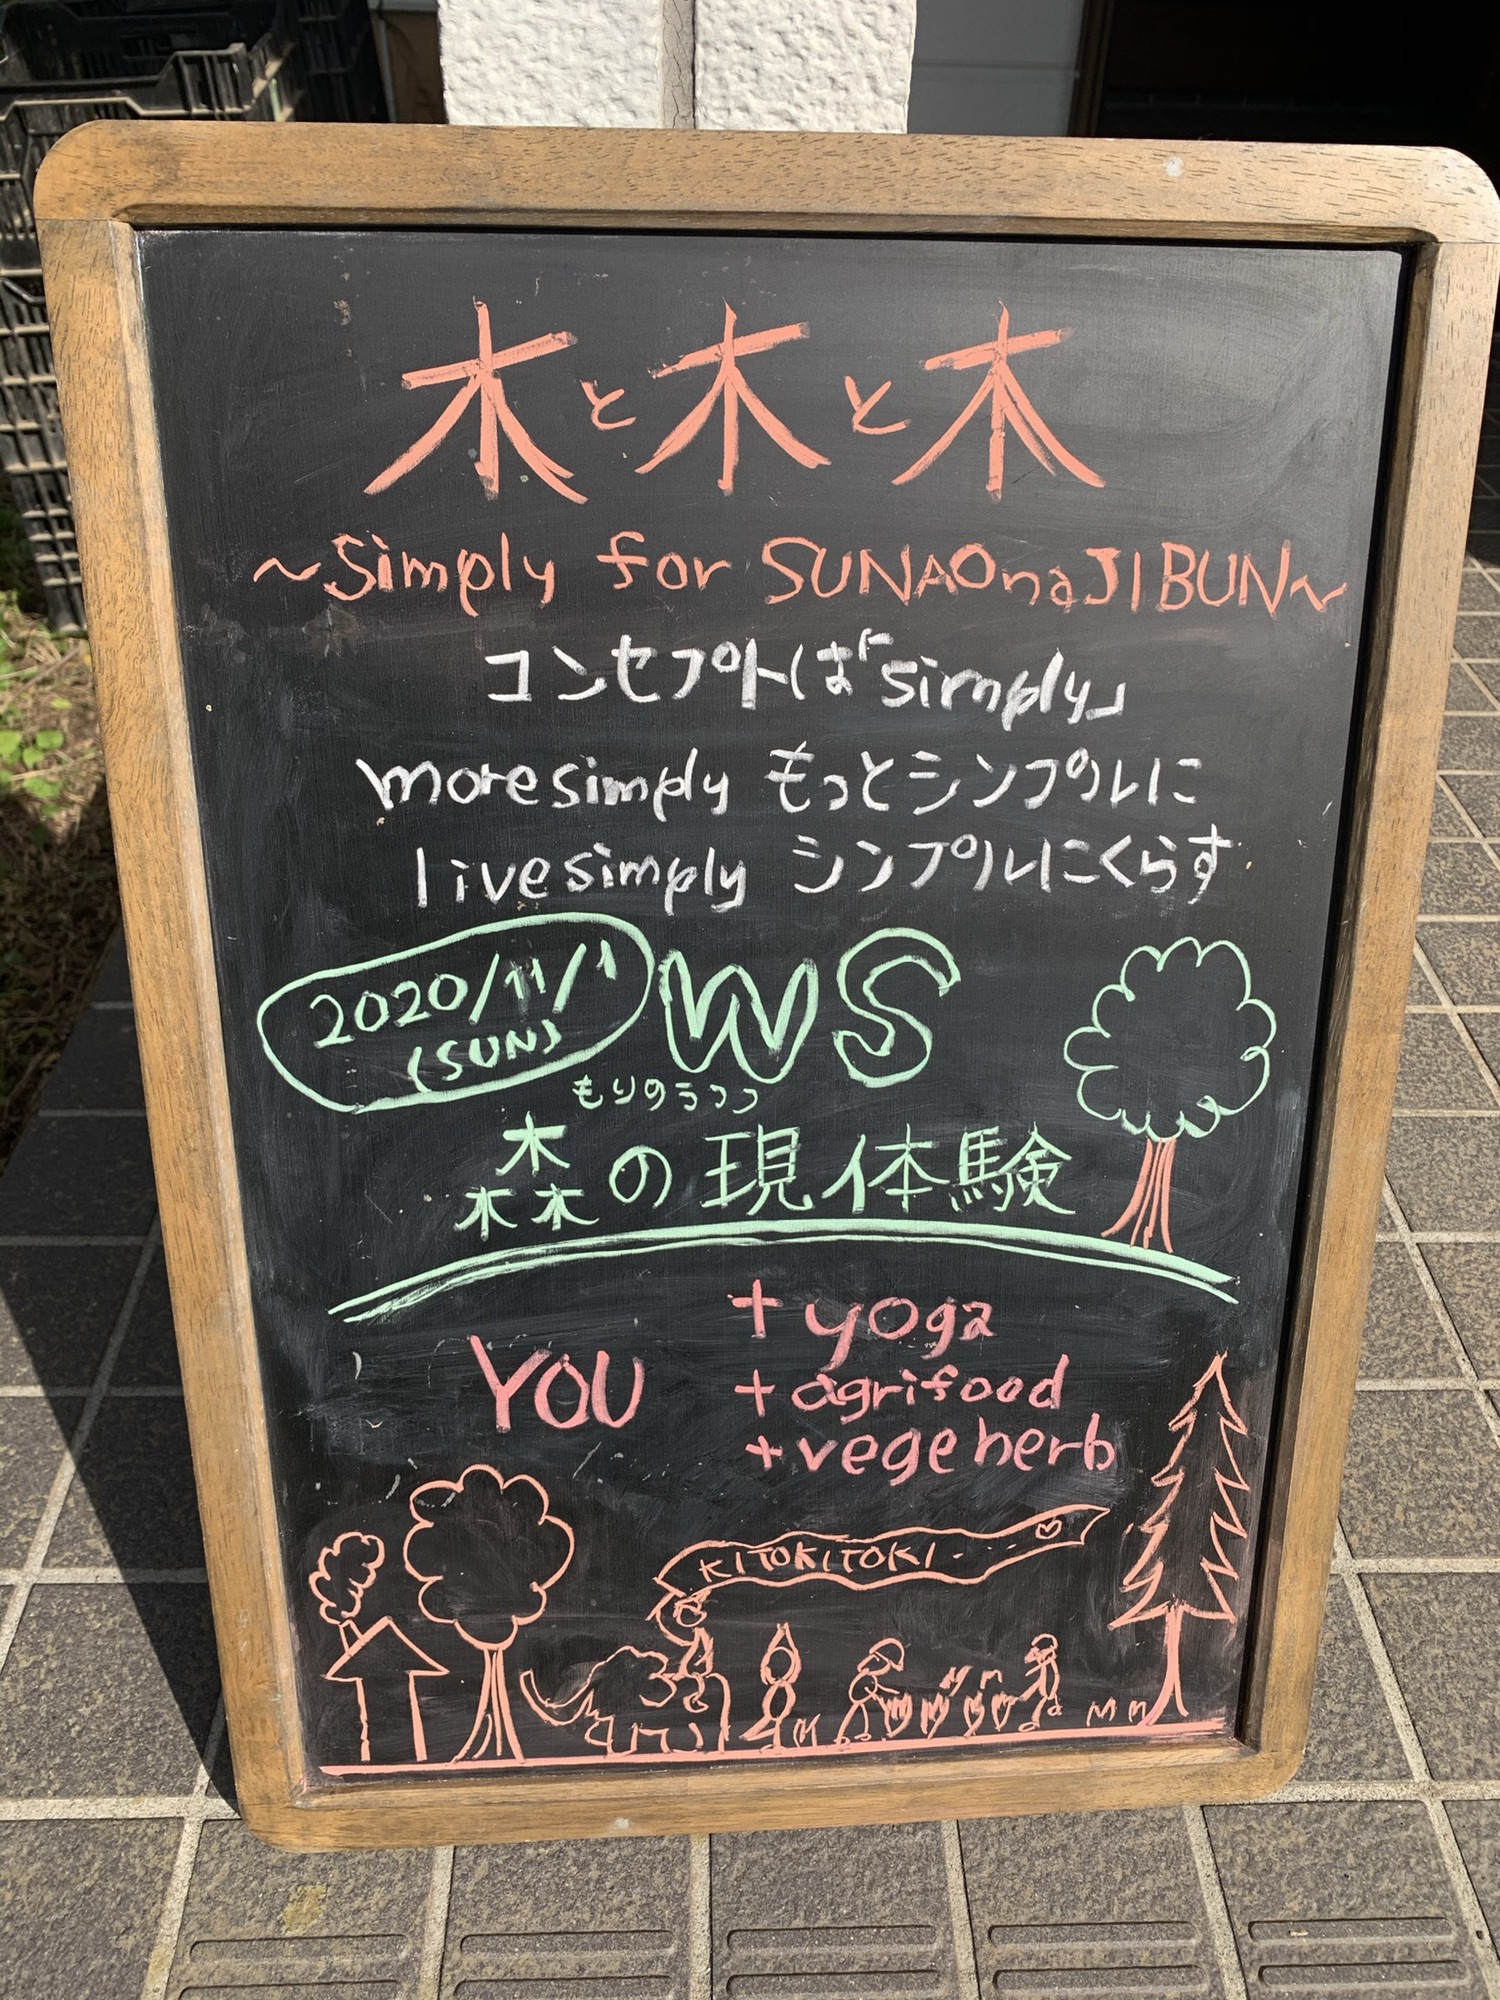 木と木と木
~Simply for SUNAOnaJIBUN~
コンセプトは「simply」
more simply もっとシンプルに
live simply シンプルにくらす
2020/11/1
(SUN)
WS
もりのうつつ
森の現体験
YOU
+ yoga
+ agrifood
+ vege herb
KITOKITOKI....